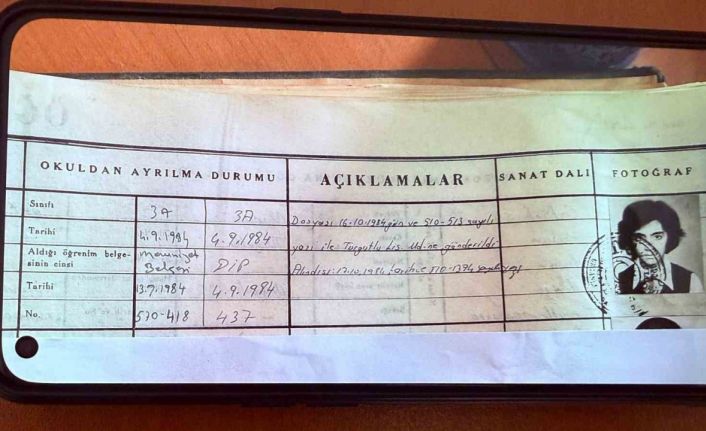 OKULDAN AYRILMA DURUMU
AÇIKLAMALAR
SANAT DALI
FOTOĞRAF
Sınıfı
3A
3A
Tarihi
4.9.1984
4.9.1984
Aldığı öğrenim belge-
sinin cinsi
Mezuniyet
Belgesi
DİP
Tarihi
13.7.1984
4.9.1984
No.
510-418
437
Dosyası 16.10.1984 gün ve 510-513 sayılı
yazı ile Turgutlu Lis. Md.ne gönderildi.
17.10.1984